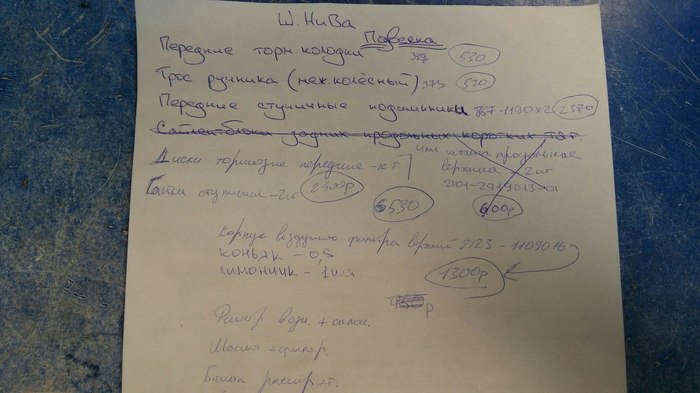 Ш. НиВа
Подвеска
Передние торм. колодки 377 530
Трос ручника (меж.колёсный) 373 520
Передние ступичные подшипники 1190х2 2380
Сайлентблоки задних продольных коротких тяг
Диски тормозные передние - к-т
или штанга продольная
верхняя - 2шт
Гайки ступицы - 2шт 2500р
2101-2919013-01
6530 600р
Корпус воздушного фильтра верхний 2123-1109016
КОНЬЯК - 0,5
ЛИМОНЧИК - 1шт
1300р
р
Фильтр возд. + салон.
Масло + фильтр
Бачок расшир